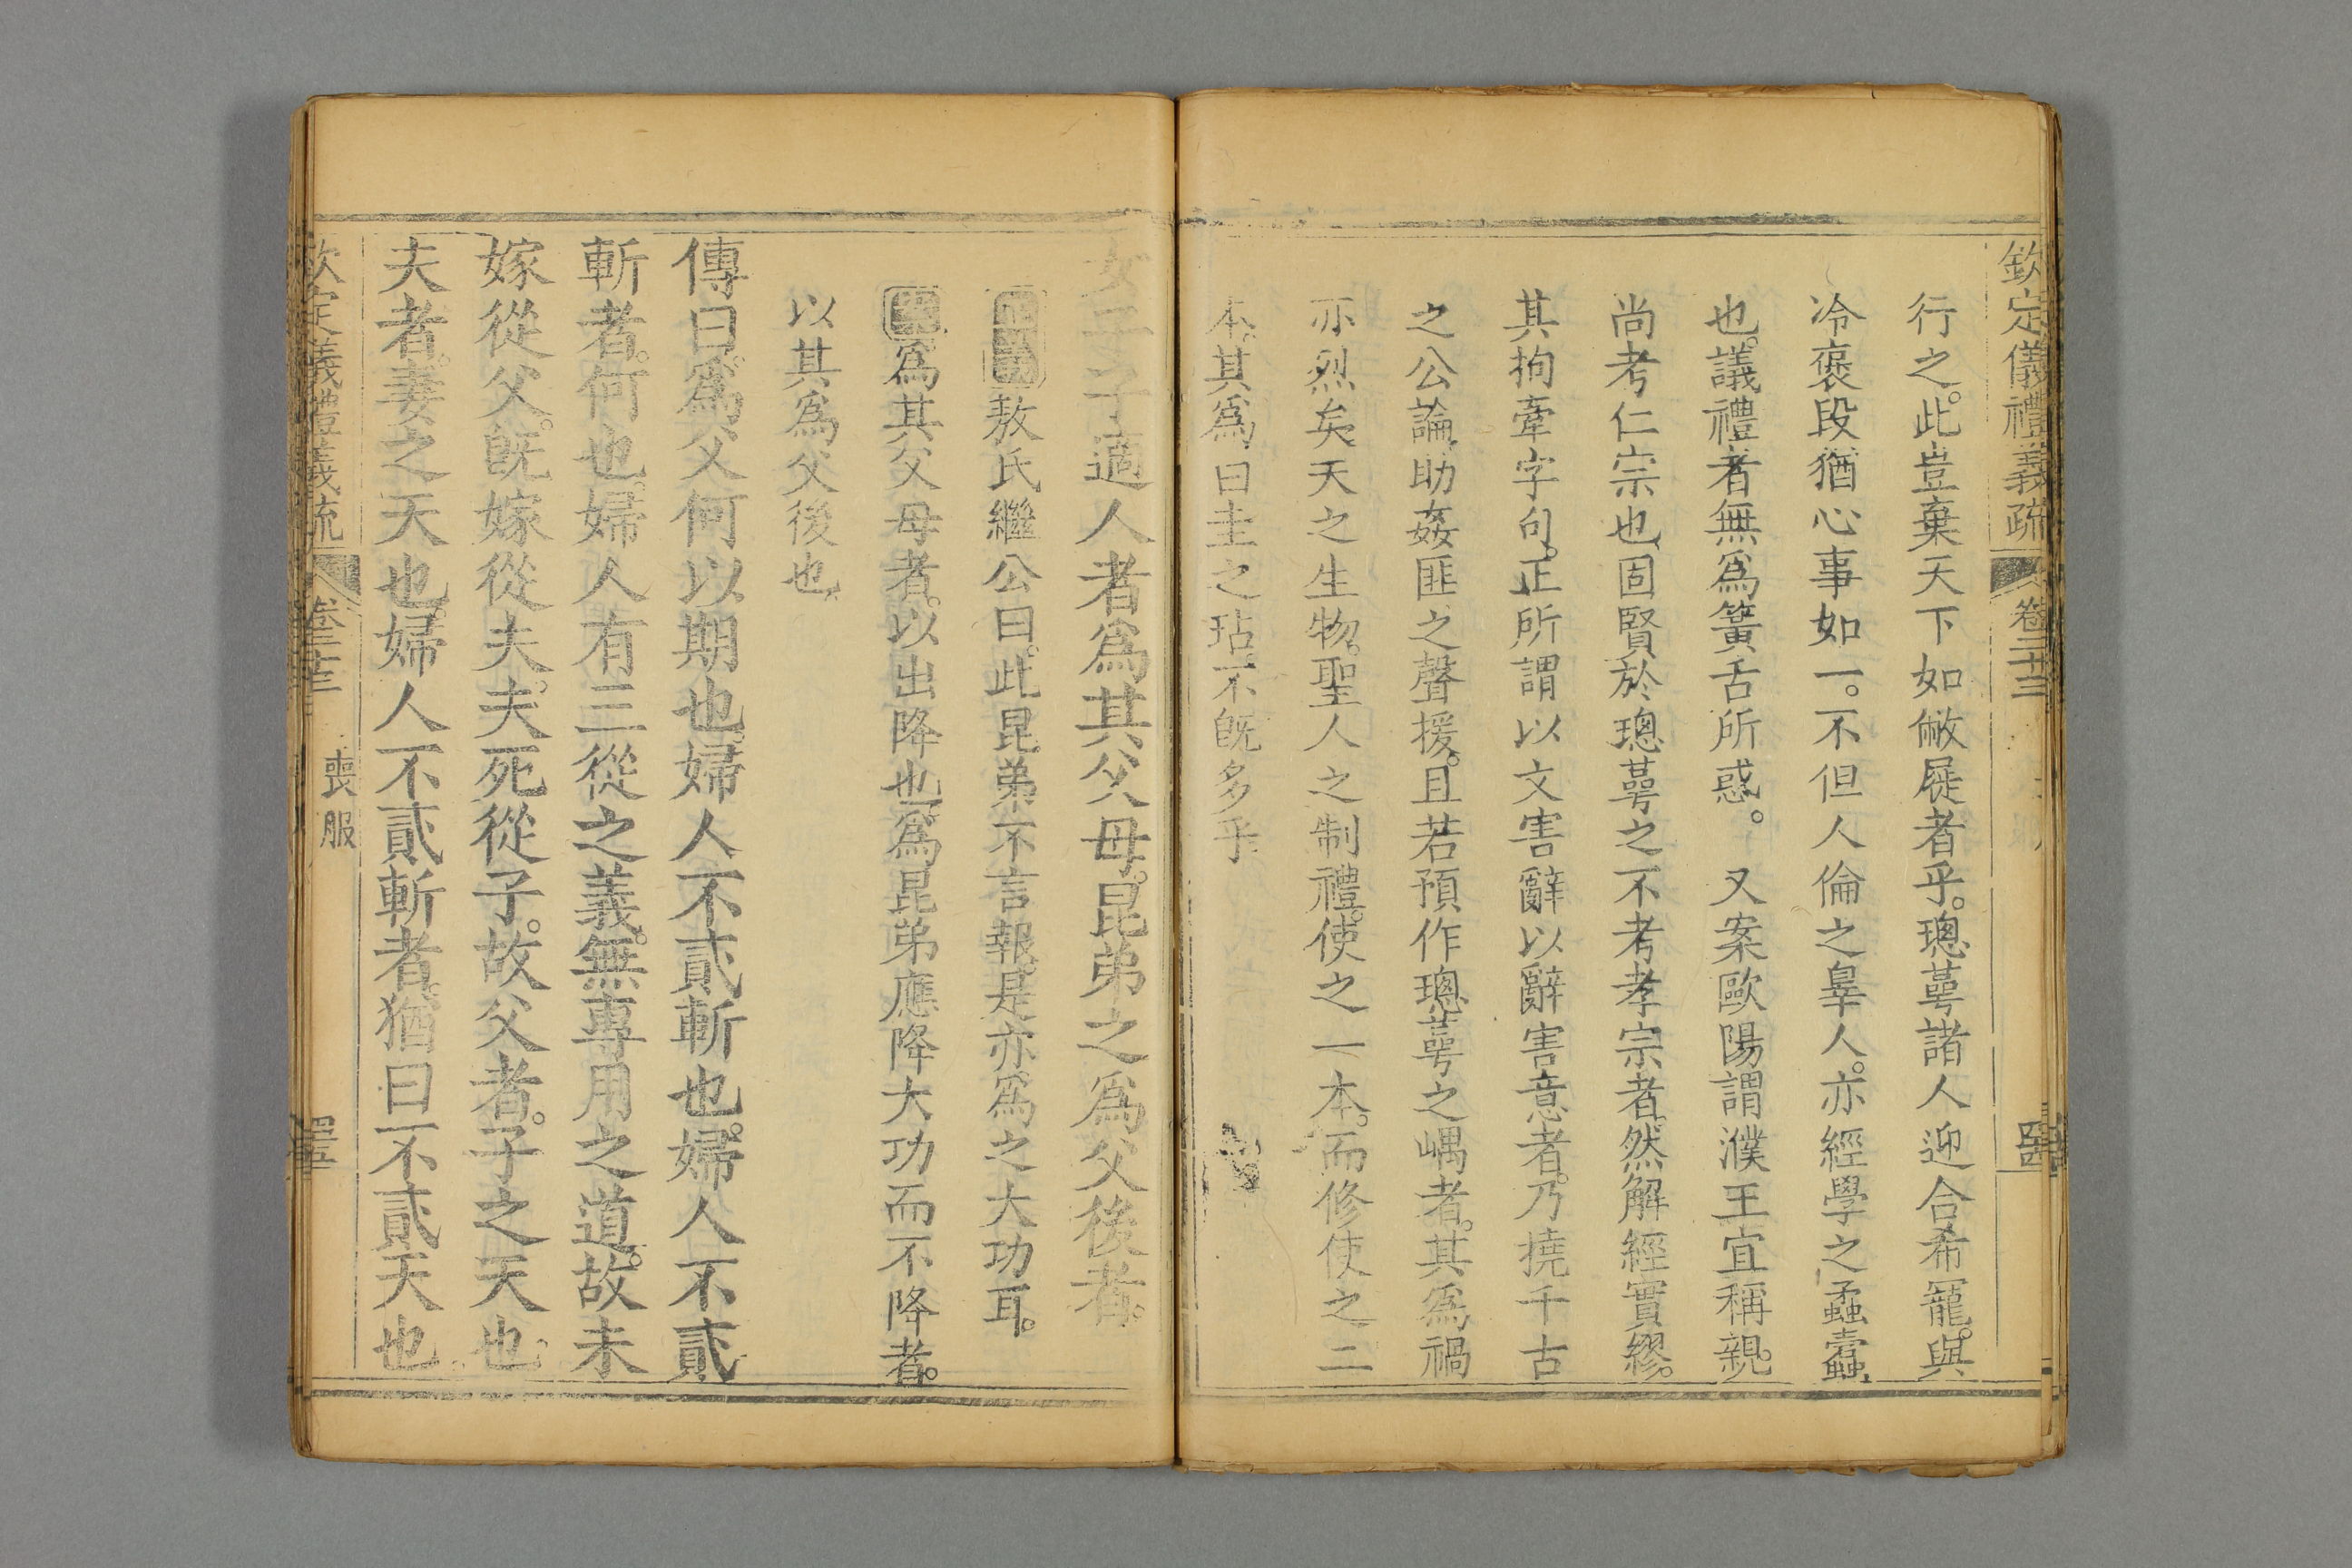 欽定儀禮義疏 卷二十三
行之。此豈棄天下如敝屣者乎。璁蕚諸人迎合希寵。與
冷褒段猶心事如一。不但人倫之辠人。亦經學之蟊蠹
也。議禮者無爲簧舌所惑。 又案歐陽謂濮王宜稱親。
尚考仁宗也固賢於璁蕚之不考孝宗者。然解經實繆。
其拘牽字句。正所謂以文害辭以辭害意者。乃撓千古
之公論助姦匪之聲援。且若預作璁蕚之嵎者。其爲禍
亦烈矣天之生物。聖人之制禮。使之一本。而修使之二
本。其爲曰圭之玷。不旣多乎
女子子適人者爲其父母。昆弟之爲父後者。
敖氏繼公曰。此昆弟不言報。是亦爲之大功耳。
爲其父母者。以出降也。爲昆弟應降大功而不降者。
以其爲父後也
傳曰。爲父何以期也。婦人不貳斬也。婦人不貳
斬者。何也。婦人有三從之義。無專用之道。故未
嫁從父。旣嫁從夫。夫死從子。故父者。子之天也。
夫者。妻之天也。婦人不貳斬者。猶曰不貳天也
欽定儀禮義疏 卷二十三 喪服